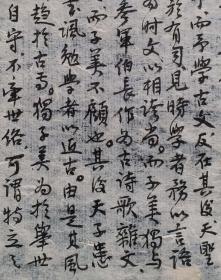 而予學古文反在其後天
於有司見時學者務以言語
時文以相誇尚而子美獨與
參軍伯長作為古詩歌雜文
而子美不顧也其後天子患
諷勉學者以近古由是其風
趨於古焉獨子美為於舉世
自守不牽世俗可謂特立之